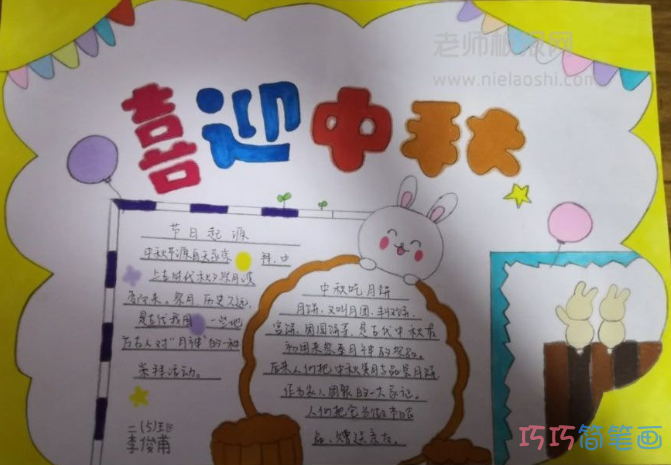 老师板报网
www.nielaoshi.com
喜迎中秋
节日起源
中秋节源自天象 拜，由
上古时代秋夕祭月演
变而来。祭月，历史久远，
是古代我国 一些地
方古人对“月神”的一种
崇拜活动。
二（5）班
李俊甫
中秋吃月饼
月饼，又叫月团、丰收饼、
宫饼、团圆饼等，是古代中秋
初用来祭奉月神的祭品。
后来人们把中秋赏月与品尝月饼
作为家人团聚的一大象征。
人们把它当作节日
品，赠送亲友。
巧巧简笔画